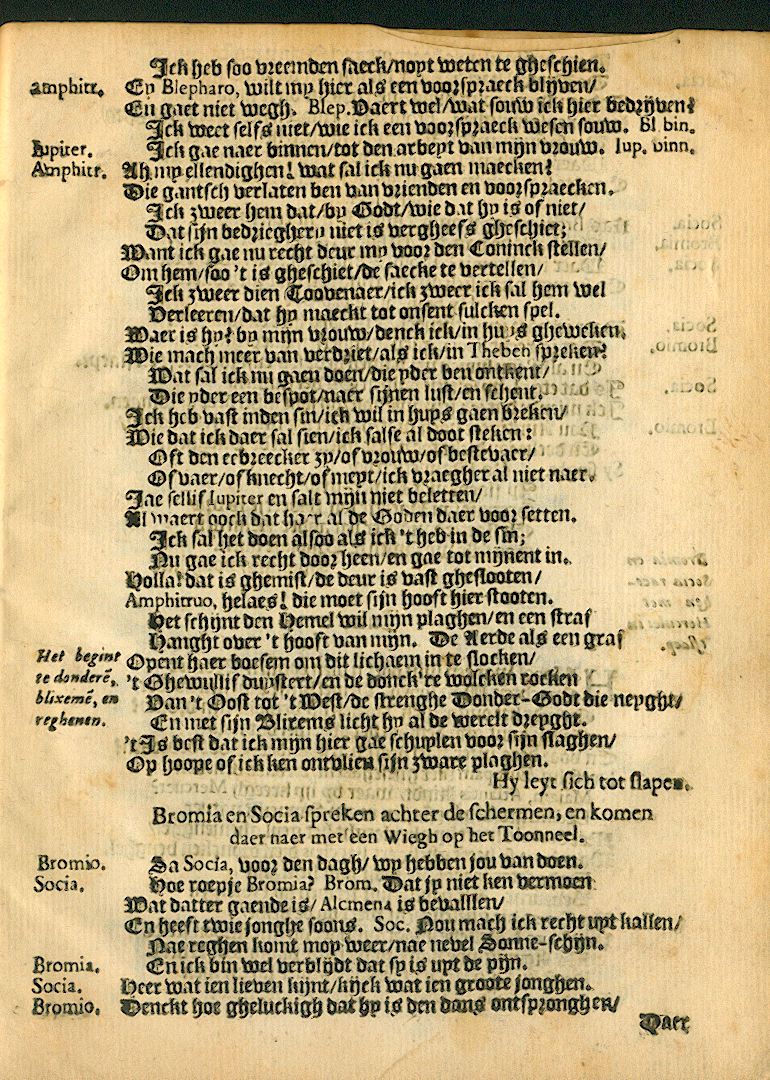 Ick heb soo vreemden saeck/noyt weten te gheschien.
Amphitr. Ey Blepharo, wilt my hier als een voorspraeck blijven/
En gaet niet wegh. Blep. Vaert wel/wat souw ick hier bedrijven?
Ick weet selfs niet/wie ick een voorspraeck wesen souw. Bl. bin.
Iupiter. Ick gae naer binnen/tot den arbeyt van mijn vrouw. Iup. binn.
Amphitr. Ah my ellendighen! wat sal ick nu gaen maecken!
Die gantsch verlaten ben van vrienden en voorspraecken.
Ick zweer hem dat/by Godt/wie dat hy is of niet/
Dat sijn bedrieghery niet is vergheefs gheschiet;
Want ick gae nu recht deur my voor den Coninck stellen/
Om hem/soo 't is gheschiet/de saecke te vertellen/
Ick zweer dien Toovenaer/ick zweer ick sal hem wel
Verleeren/dat hy maeckt tot onsent sulcken spel.
Waer is hy? by mijn vrouw/denck ick/in huys gheweken.
Wie mach meer van verdriet/als ick/in Theben spreken?
Wat sal ick nu gaen doen/die yder ben ontkent/
Die yder een bespot/naer sijnen lust/en schent.
Ick heb vast inden sin/ick wil in huys gaen breken/
Wie dat ick daer sal sien/ick salse al doot steken:
Oft den eebreecker zy/of vrouw/of bestevaer/
Of vaer/of knecht/of meyt/ick vraegher al niet naer.
Jae sellif Iupiter en salt mijn niet beletten/
Al waert oock dat haer al de Goden daer voor setten.
Ick sal het doen alsoo als ick 't heb in de sin;
Nu gae ick recht door heen/en gae tot mijnent in.
Holla! dat is ghemist/de deur is vast ghesslooten/
Amphitruo, helaes! die moet sijn hooft hier stooten.
Het schijnt den Hemel wil mijn plaghen/en een straf
Hanght over 't hooft van mijn. De Aerde als een graf
Het begint te donderē, blixemē, en reghenen.
Opent haer boesem om dit lichaem in te slocken/
't Ghewullif duystert/en de donck're wolcken rocken
Van 't Oost tot 't West/de strenghe Donder-Godt die neyght/
En met sijn Blixems licht hy al de werelt dreyght.
't Is best dat ick mijn hier gae schuylen voor sijn slaghen/
Op hoope of ick ken ontvlien sijn zware plaghen.
Hy leyt sich tot slapen.
Bromia en Socia spreken achter de schermen, en komen
daer naer met een Wiegh op het Toonneel.
Bromio. Sa Socia, voor den dagh/wy hebben jou van doen.
Socia. Hoe roepje Bromia? Brom. Dat jy niet ken vermoen
Wat datter gaende is/Alcmena is bevalllen/
En heeft twie jonghe soons. Soc. Nou mach ick recht uyt kallen/
Nae reghen komt moy weer/nae nevel Sonne-schijn.
Bromia. En ick bin wel verblijdt dat sy is uyt de pijn.
Socia. Heer wat ien lieven kijnt/kijck wat ien groote jonghen.
Bromio. Denckt hoe gheluckigh dat hy is den dans ontspronghen/
Daer